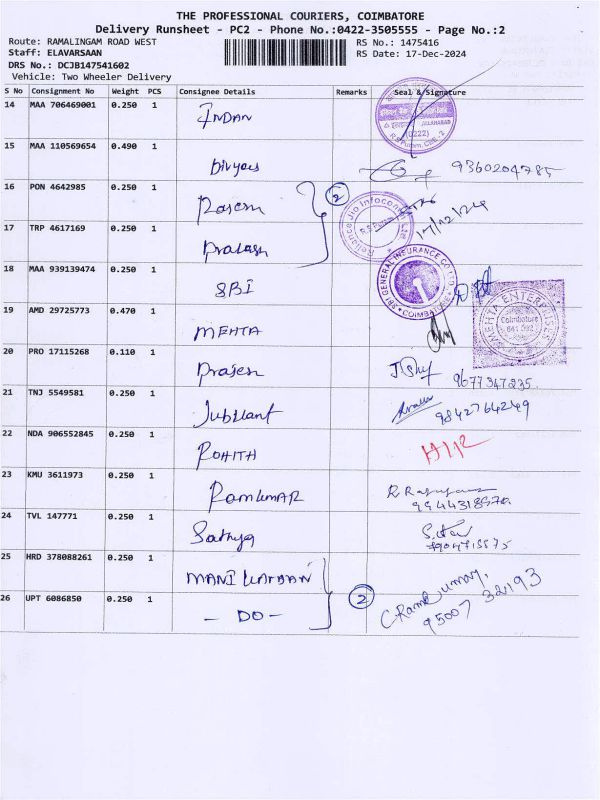 THE PROFESSIONAL COURIERS, COIMBATORE
Delivery Runsheet - PC2 - Phone No.:0422-3505555 - Page No.:2
Route: RAMALINGAM ROAD WEST
RS No.: 1475416
Staff: ELAVARSAAN
RS Date: 17-Dec-2024
DRS No.: DCJB147541602
Vehicle: Two Wheeler Delivery
S No Consignment No Weight PCS Consignee Details Remarks Seal & Signature
14 MAA 706469001 0.250 1 INDAN
(0222)
R.S Puram, CBE-2
15 MAA 110569654 0.490 1 Divyas 9360204785
16 PON 4642985 0.250 1 Rajesh 2
Reliance Jio Infocomm Ltd
17/12/24
17 TRP 4617169 0.250 1 Prakash
18 MAA 939139474 0.250 1 SBI
SBI GENERAL INSURANCE CO LTD
COIMBATORE
19 AMD 29725773 0.470 1 MEHTA
MEHTA ENTERPRISES
Coimbatore
641 002
20 PRO 17115268 0.110 1 Prajesh 9677347235
21 TNJ 5549581 0.250 1 Jubilant 9842764249
22 NDA 906552845 0.250 1 ROHITH
23 KMU 3611973 0.250 1 Ramkumar
9944318570
24 TVL 147771 0.250 1 Sathya
25 HRD 378088261 0.250 1 MANI
26 UPT 6086850 0.250 1 - DO - 2
95007 32193